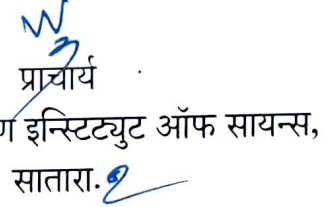 प्राचार्य
इन्स्टिट्युट ऑफ सायन्स,
सातारा.